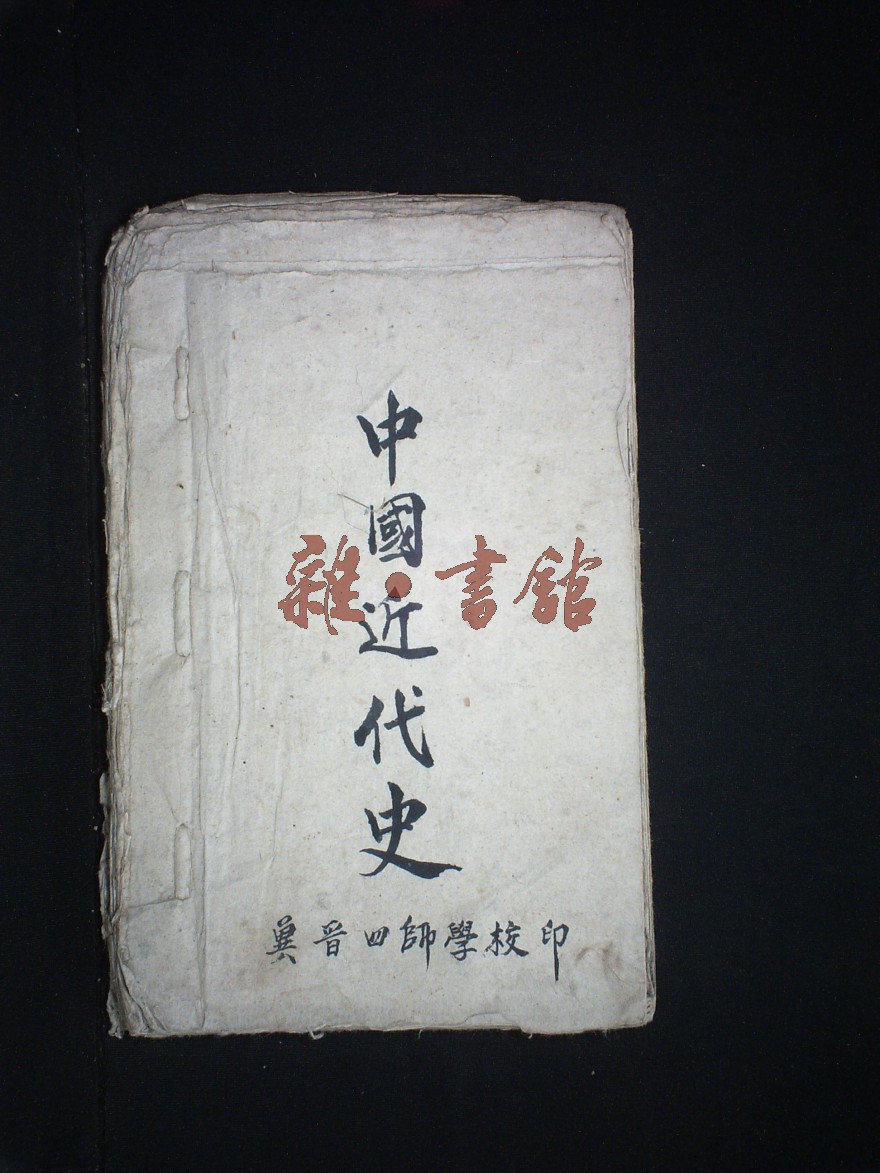 中國近代史
雜·書館
冀晋四師學校印